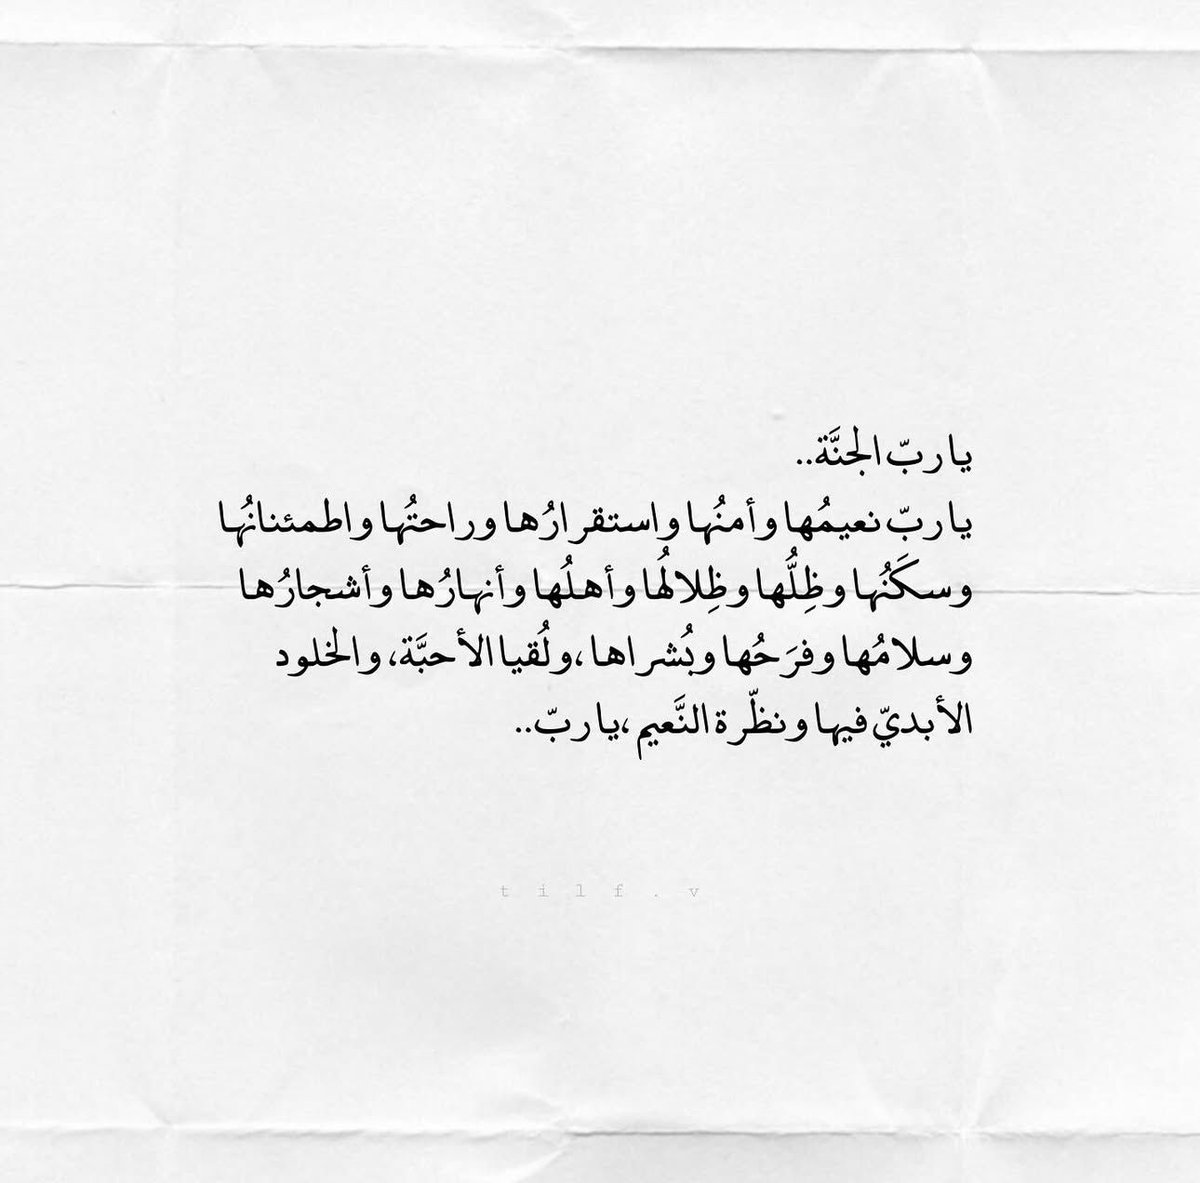 يا ربّ الجنَّة..
يا ربّ نعيمُها وأمنُها واستقرارُها وراحتُها واطمئنانُها
وسكَنُها وظِلُّها وظِلالُها وأهلُها وأنهارُها وأشجارُها
وسلامُها وفرَحُها وبُشراها ،ولُقيا الأحبَّة، والخلود
الأبديّ فيها ونظّرة النَّعيم ،يا ربّ..
tilf.v